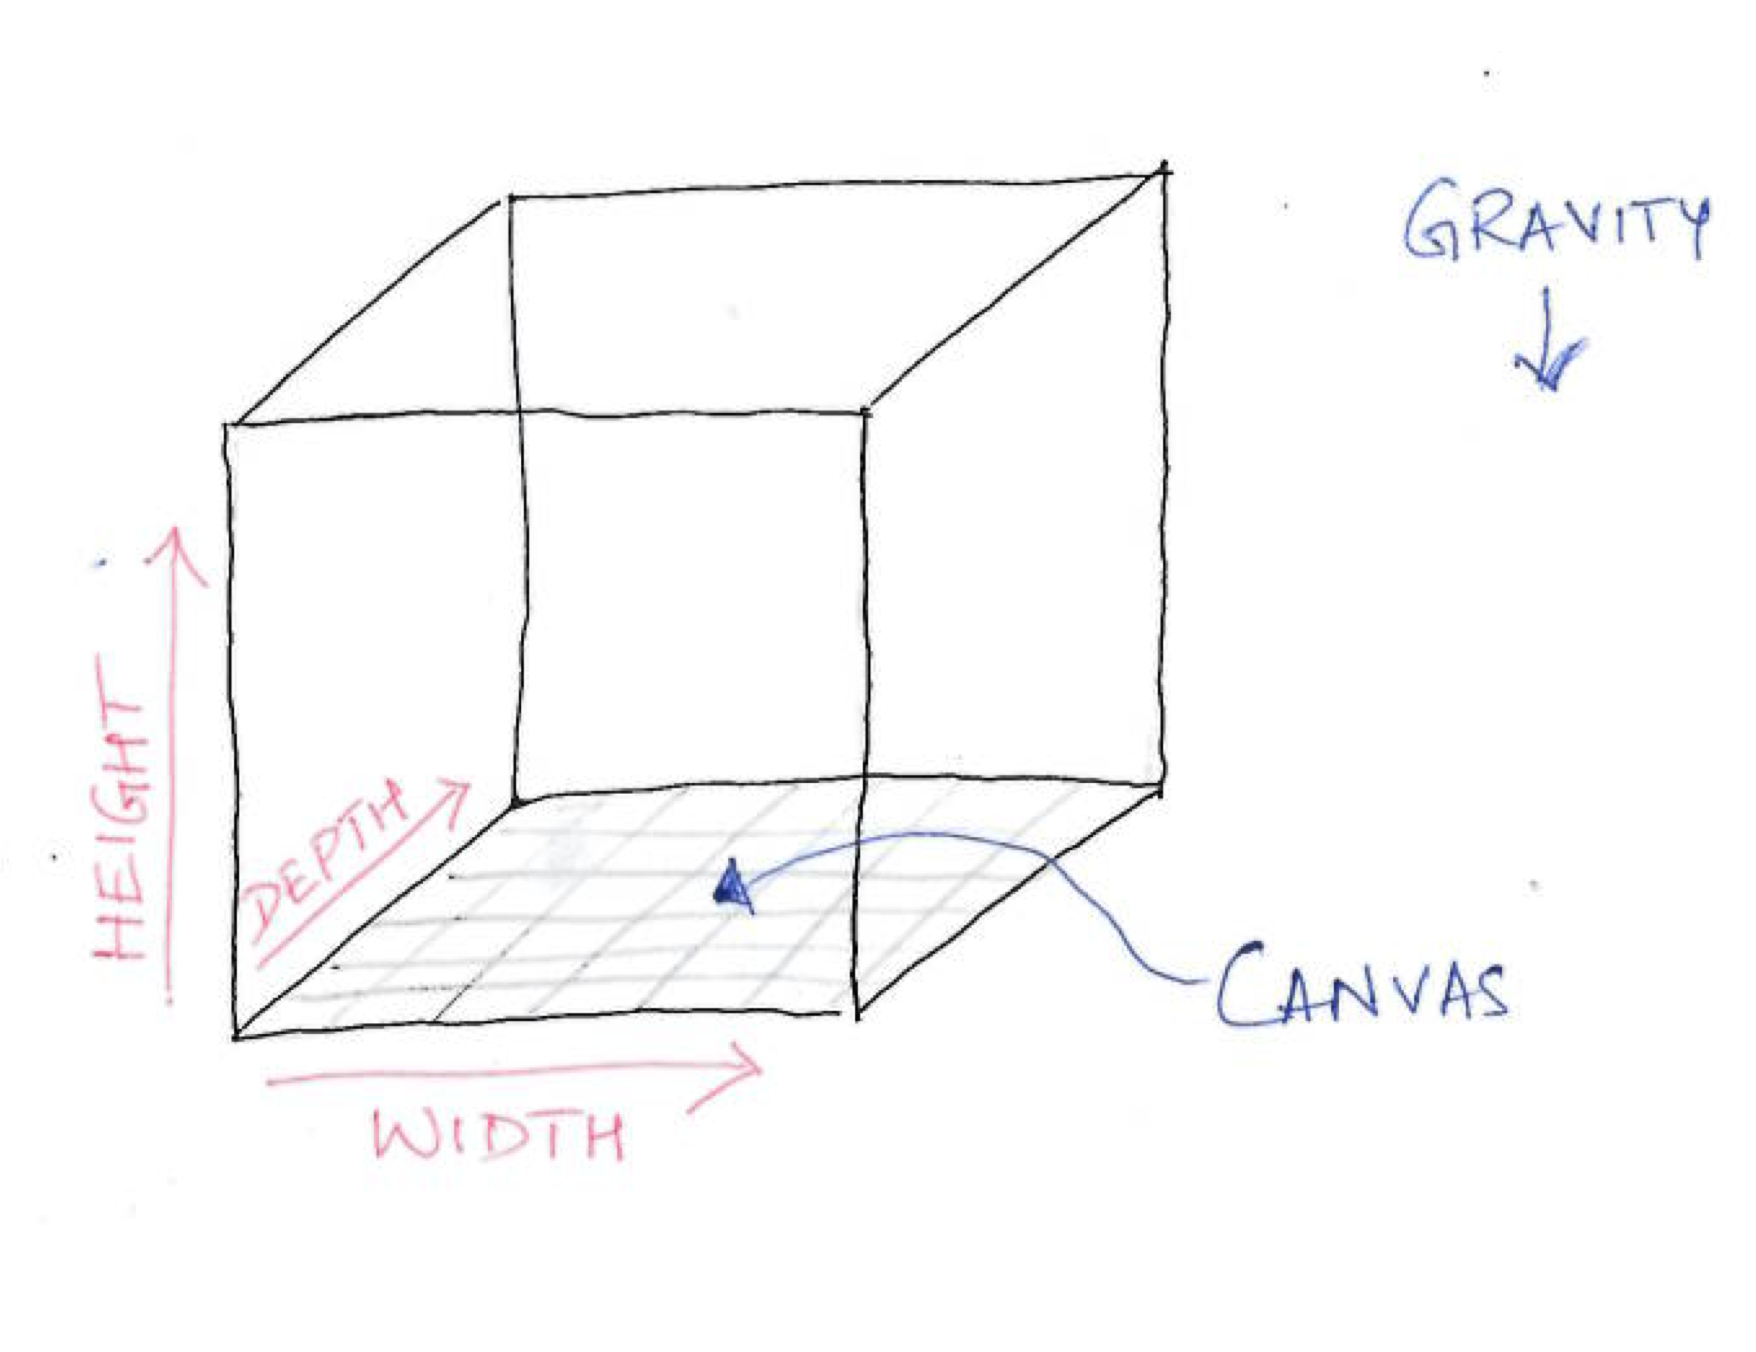 GRAVITY
HEIGHT
DEPTH
CANVAS
WIDTH